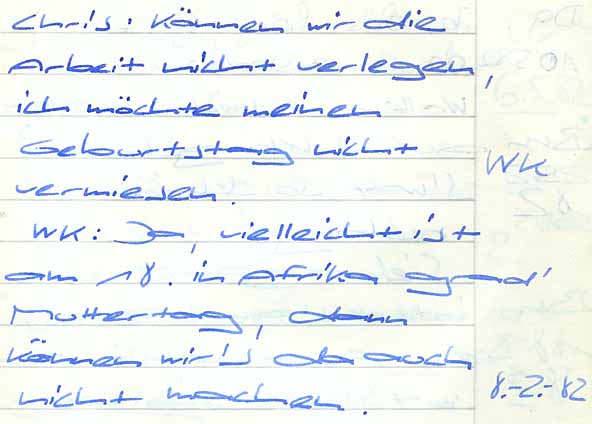 Chris: Können wir die
Arbeit nicht verlegen,
ich möchte meinen
Geburtstag nicht
WK
vermiesen.
WK: Ja, vielleicht ist
am 18. in Afrika grad'
Muttertag, dann
können wir's da auch
nicht machen.
8.-2.-82